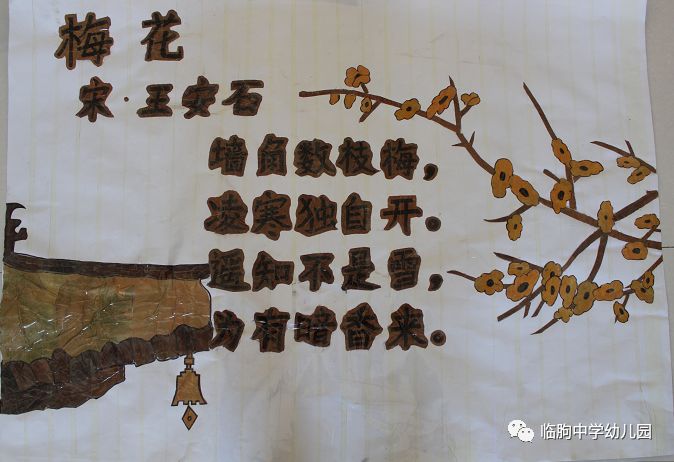 梅花
宋·王安石
墙角数枝梅，
凌寒独自开。
遥知不是雪，
为有暗香来。
临朐中学幼儿园